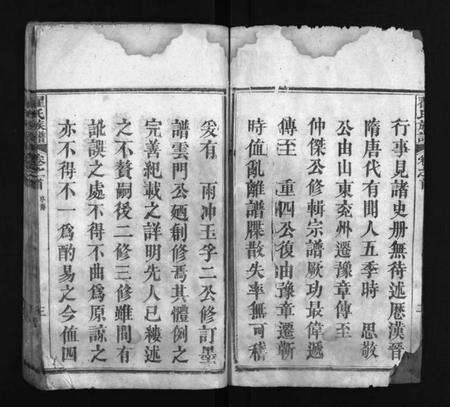 行事見諸史册無待述歷漢晉
隋唐代有聞人五季時　思敬
公由山東兗州遷豫章傳至
仲傑公修輯宗譜厥功最偉遞
傳至　重四公復由豫章遷蘄
時值亂離譜牒散失率無可稽
爰有　雨冲玉孚二公修訂墨
譜雲門公廼創修焉其體例之
完善紀載之詳明先人已縷述
之不贅嗣後二修三修雖間有
訛誤之處不得不曲為原諒之
亦不得不一為酌易之今值四
氏族譜
卷之首